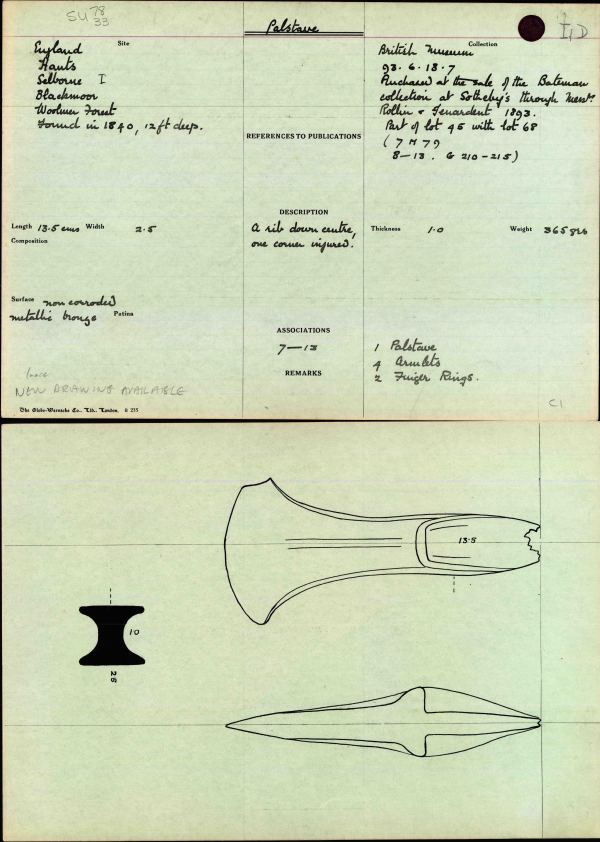 SU 78
33
Palstave
I, D
Site
England
Hants
Selborne I
Blackmoor
Woolmer Forest
Found in 1840, 12ft deep.
Collection
British Museum
93. 6. 13. 7
Purchased at the sale of the Bateman
collection at Sotheby's through Messrs
Rollin & Feuardent 1893.
Part of lot 45 with lot 68
(7 M 79
8–13. G 210–215)
REFERENCES TO PUBLICATIONS
DESCRIPTION
A rib down centre,
one corner injured.
Length 13.5 cms Width 2.5
Composition
Thickness 1.0 Weight 365 grs
Surface non corroded
metallic bronze Patina
ASSOCIATIONS
7–13
REMARKS
1 Palstave
4 Armlets
2 Finger Rings.
NEW DRAWING AVAILABLE
The Globe-Wernicke Co., Ltd., London.
C1
13.5
10